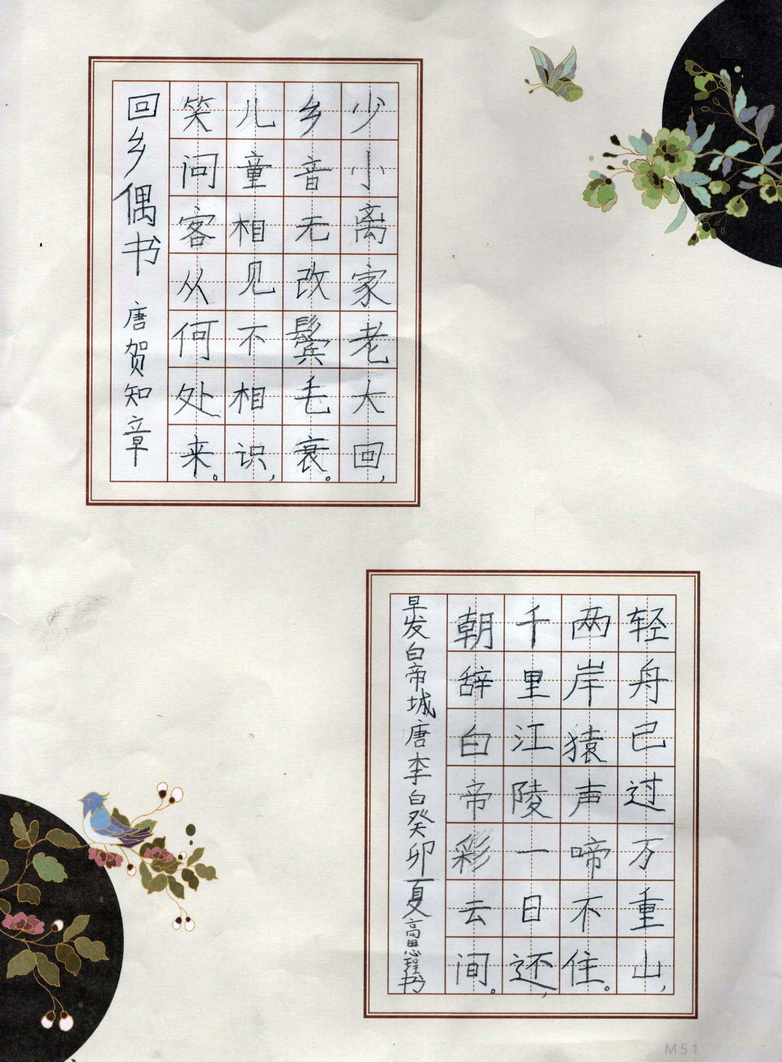 少小离家老大回,
乡音无改鬓毛衰。
儿童相见不相识,
笑问客从何处来。
回乡偶书 唐贺知章
轻舟已过万重山,
两岸猿声啼不住。
千里江陵一日还,
朝辞白帝彩云间。
早发白帝城唐李白癸卯夏高思程书
M51